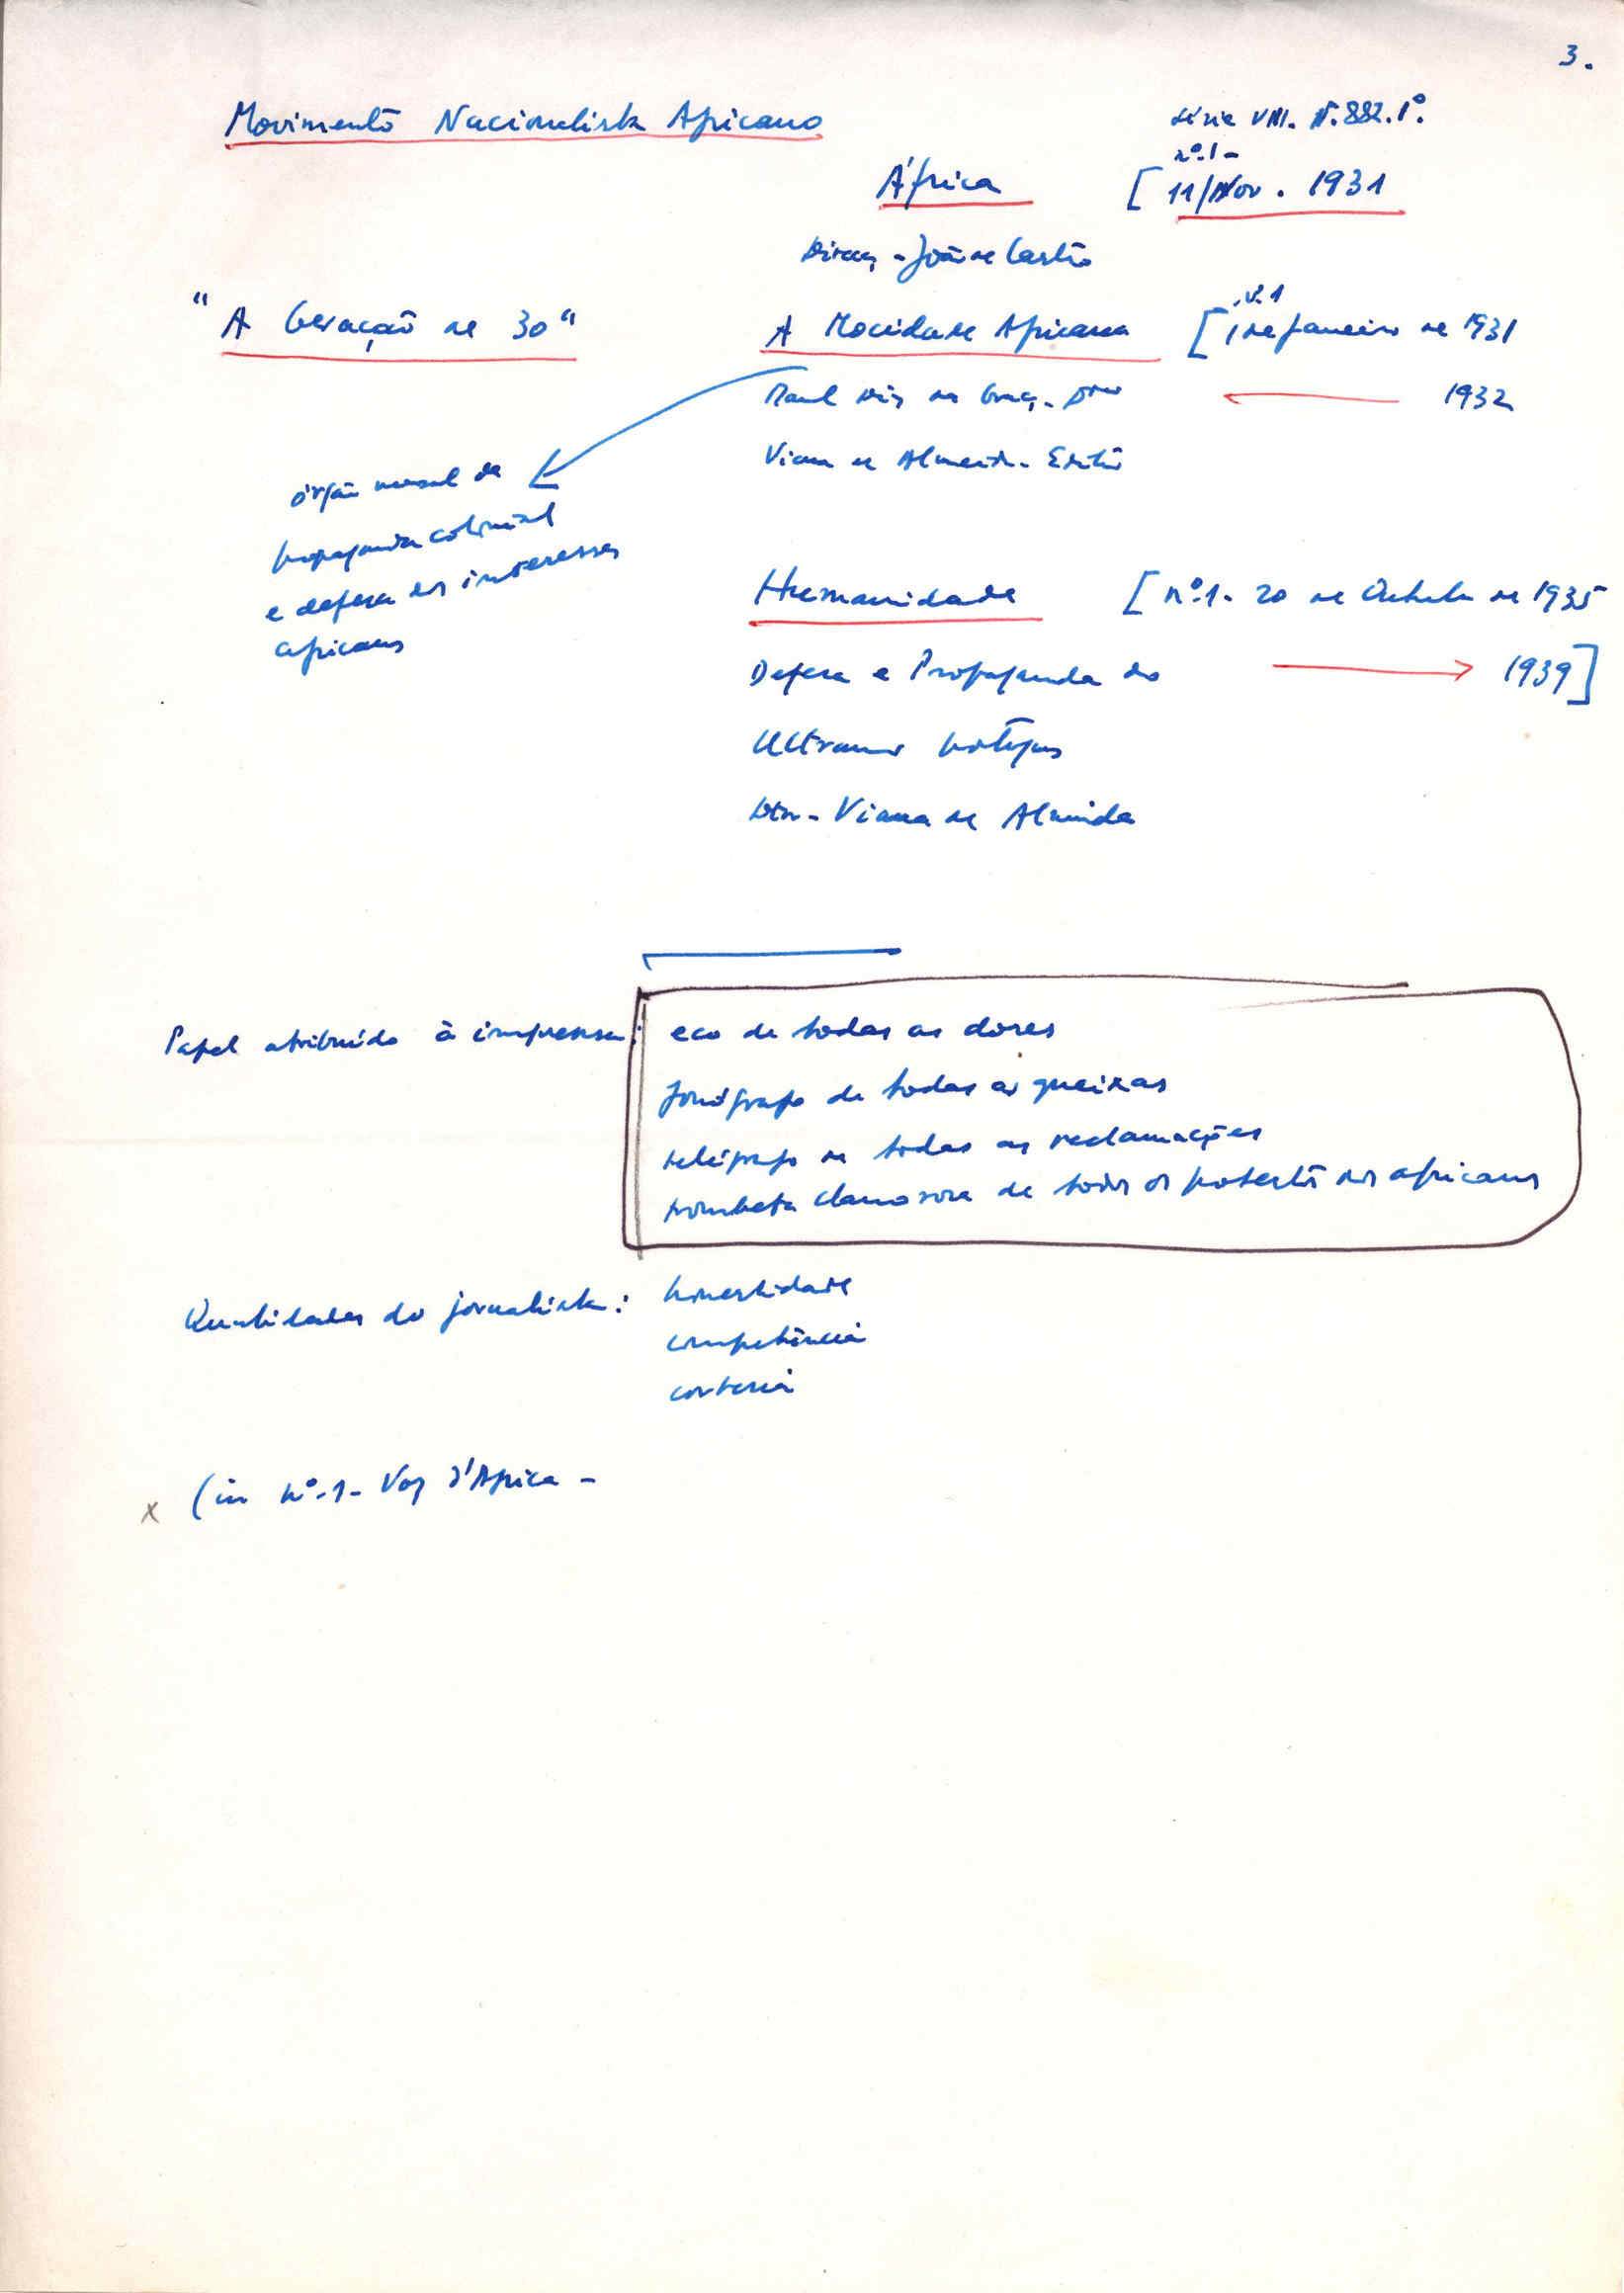 3.
Movimento Nacionalista Africano
Série VIII. N. 882. 1º.
nº. 1 -
África
[ 11/Nov. 1931
Direcç - João de Castro
"A Geração de 30"
A Mocidade Africana
nº. 1
[ 1 de Janeiro de 1931
Raul da Graç. -
1932
Viana de Almeida - Editor
órgão mensal de
propaganda colonial
e defesa dos interesses
africanos
Humanidade
[ nº. 1 - 20 de Outubro de 1935
Defesa e Propaganda do
1939]
Ultramar Português
Dtor - Viana de Almeida
Papel atribuído à imprensa:
eco de todas as dores
fonógrafo de todas as queixas
telégrafo de todas as reclamações
trombeta clamorosa de todos os protestos dos africanos
Qualidades do jornalista:
honestidade
competência
cortesia
x (in nº. 1 - Voz d'Africa -